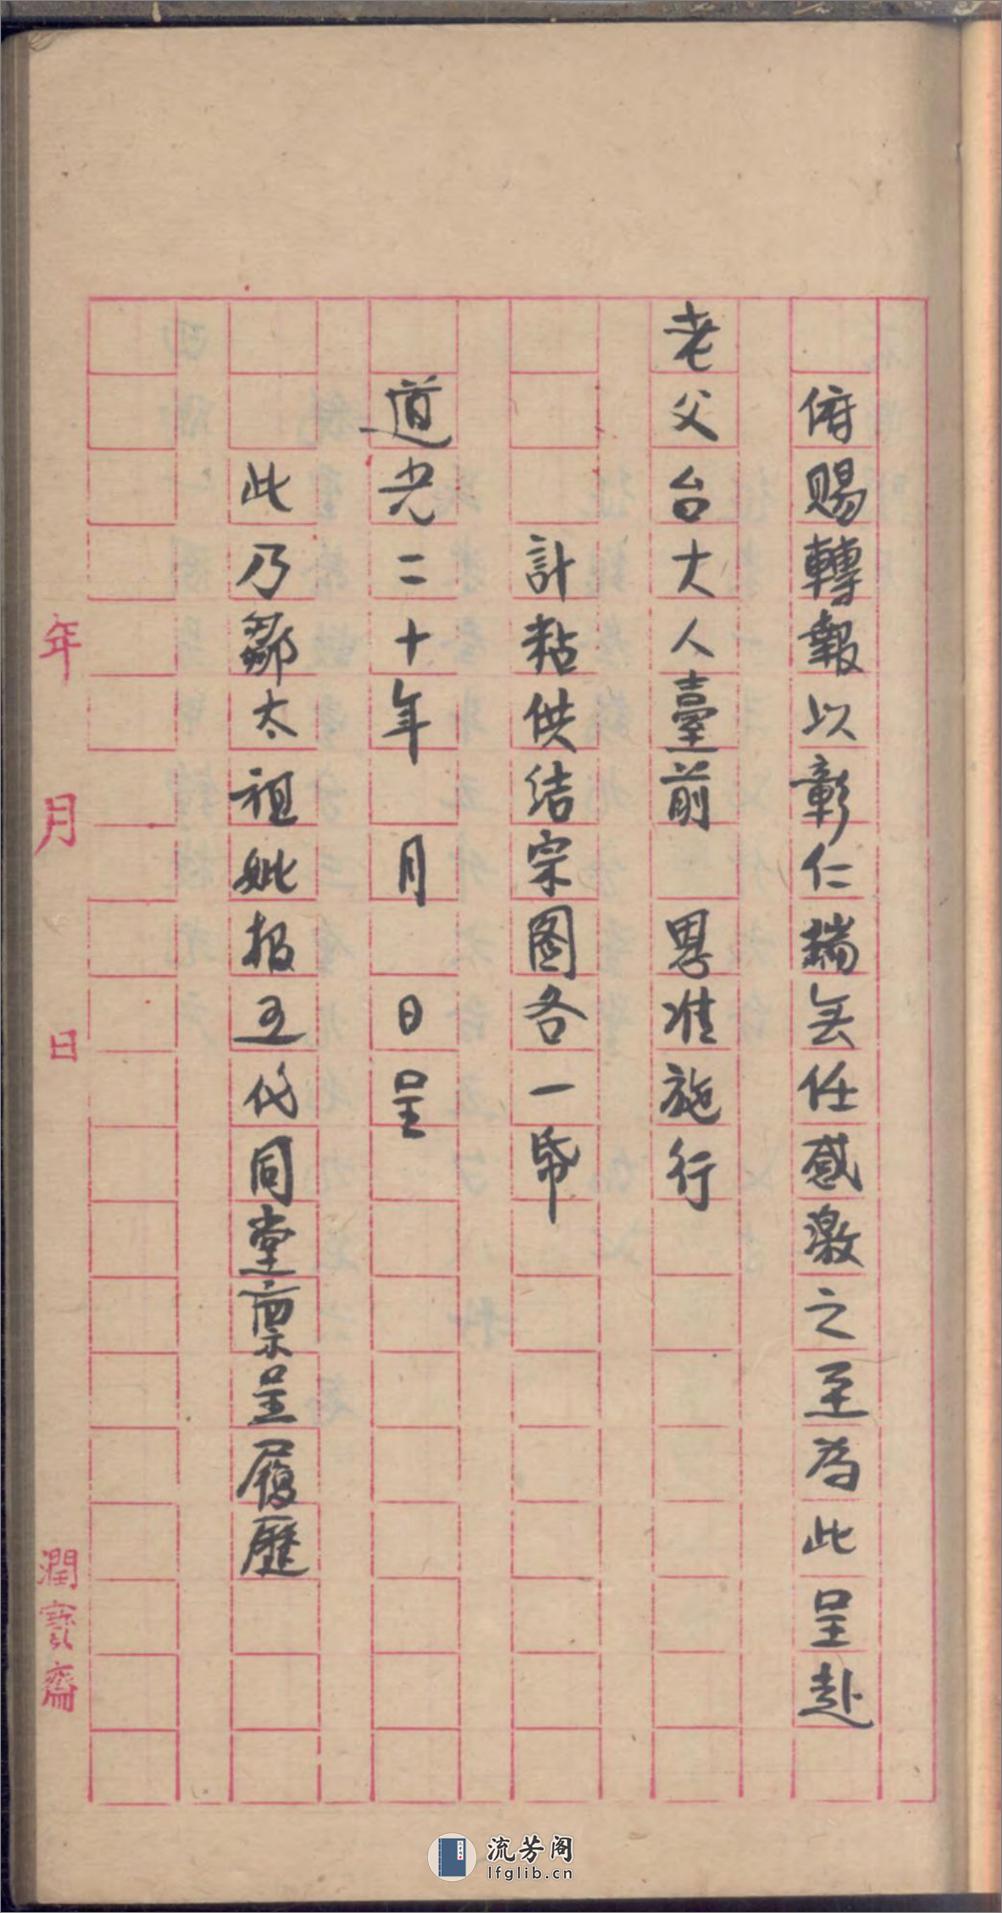 俯賜轉報以彰仁瑞无任感激之至為此呈赴
老父台大人臺前 恩准施行
計粘供结宗图各一帋
道光二十年 月 日呈
此乃鄒太祖妣报五代同堂禀呈履歷
年 月 日
潤寶齋
流芳阁
lfglib.cn